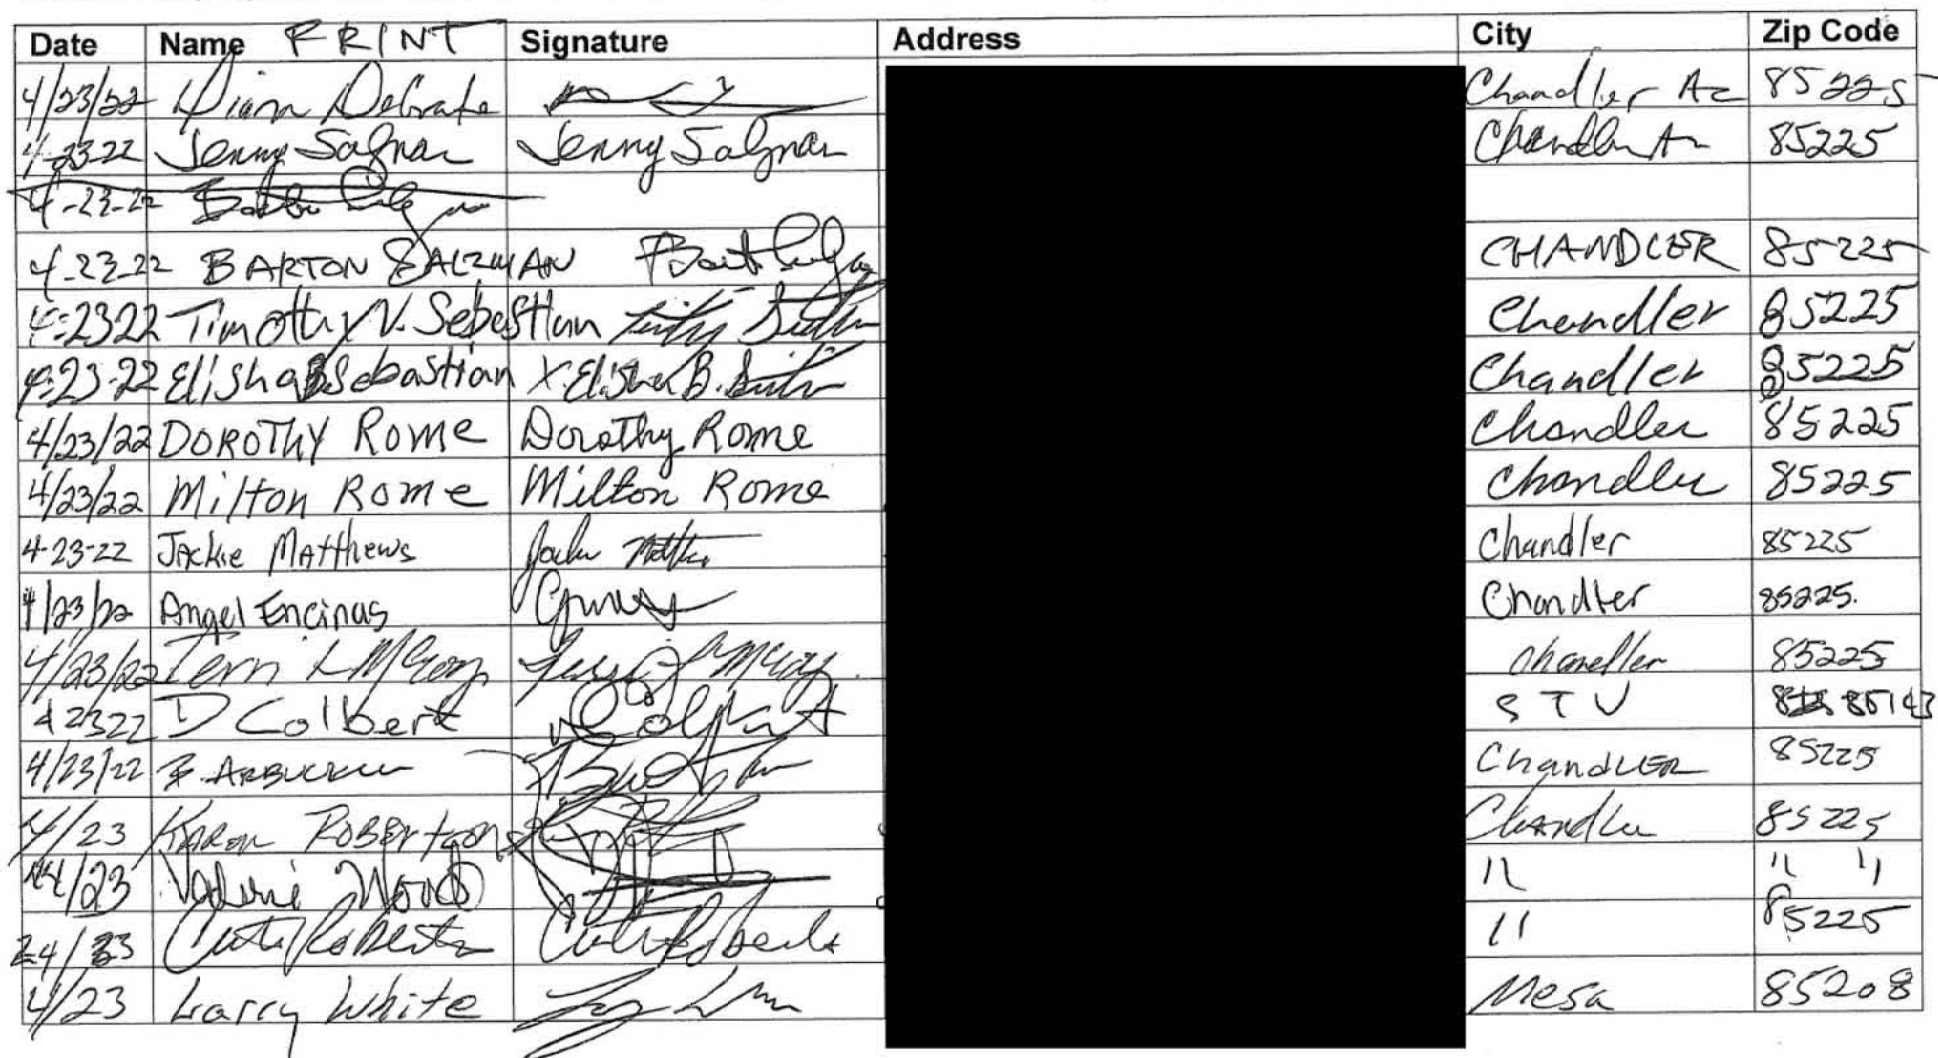 Date Name PRINT Signature Address City Zip Code
4/23/22 Chandler Az 85225
4-23-22 Jenny Jenny Chandler Az 85225
4-23-22
4-23-22 BARTON SALZMAN CHANDLER 85225
4-23-22 Timothy V. Sebastian Chandler 85225
4-23-22 Elisha B Sebastian X. Elisha B. Chandler 85225
4/23/22 DOROTHY ROME Dorothy Rome Chandler 85225
4/23/22 Milton Rome Milton Rome Chandler 85225
4-23-22 Jackie Matthews Chandler 85225
4/23/22 Angel Encinas Chandler 85225.
4/23/22 Terri L Chandler 85225
4 23 22 D Colbert Colbert STV 85143
4/23/22 Chandler 85225
4/23 Karen Robertson Chandler 85225
4/23 Valerie Wood 11 11 11
4/23 Roberts Roberts 11 85225
4/23 Larry White Mesa 85208